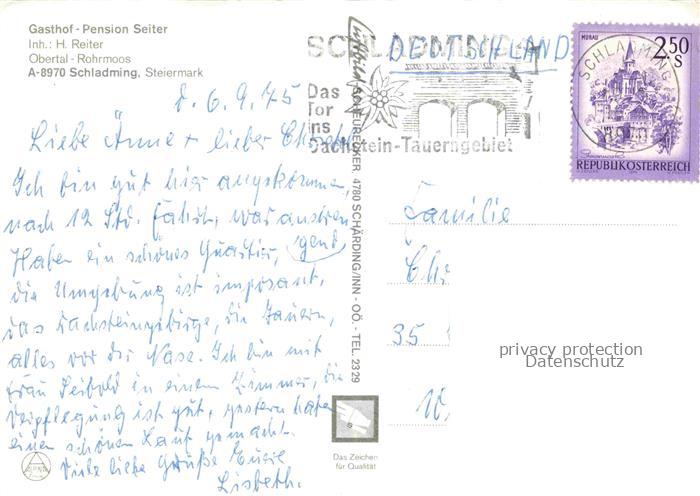 Gasthof - Pension Seiter
Inh.: H. Reiter
Obertal - Rohrmoos
A-8970 Schladming, Steiermark
SCHLADMING
DEUTSCHLAND
Das
Tor
ins
Dachstein-Tauerngebiet
SCHLADMING
MURAU
2.50
S
REPUBLIK ÖSTERREICH
d. 6.9.75
Liebe Änne + lieber
Ich bin gut hier angekommen,
nach 12 Std. Fahrt, war anstren
gend
Haben ein schönes Quartier,
die Umgebung ist imposant,
das Dachsteingebirge, die Tauern,
alles vor der Nase. Ich bin mit
Frau Seibold in einem Zimmer, die
Verpflegung ist gut, gestern haben
einen schönen Lauf gemacht.
Viele liebe Grüße Eure
Lisbeth.
SCHEURECKER, 4780 SCHÄRDING/INN - OÖ. - TEL. 2329
Familie
Chr
35
privacy protection
Datenschutz
Das Zeichen
für Qualität